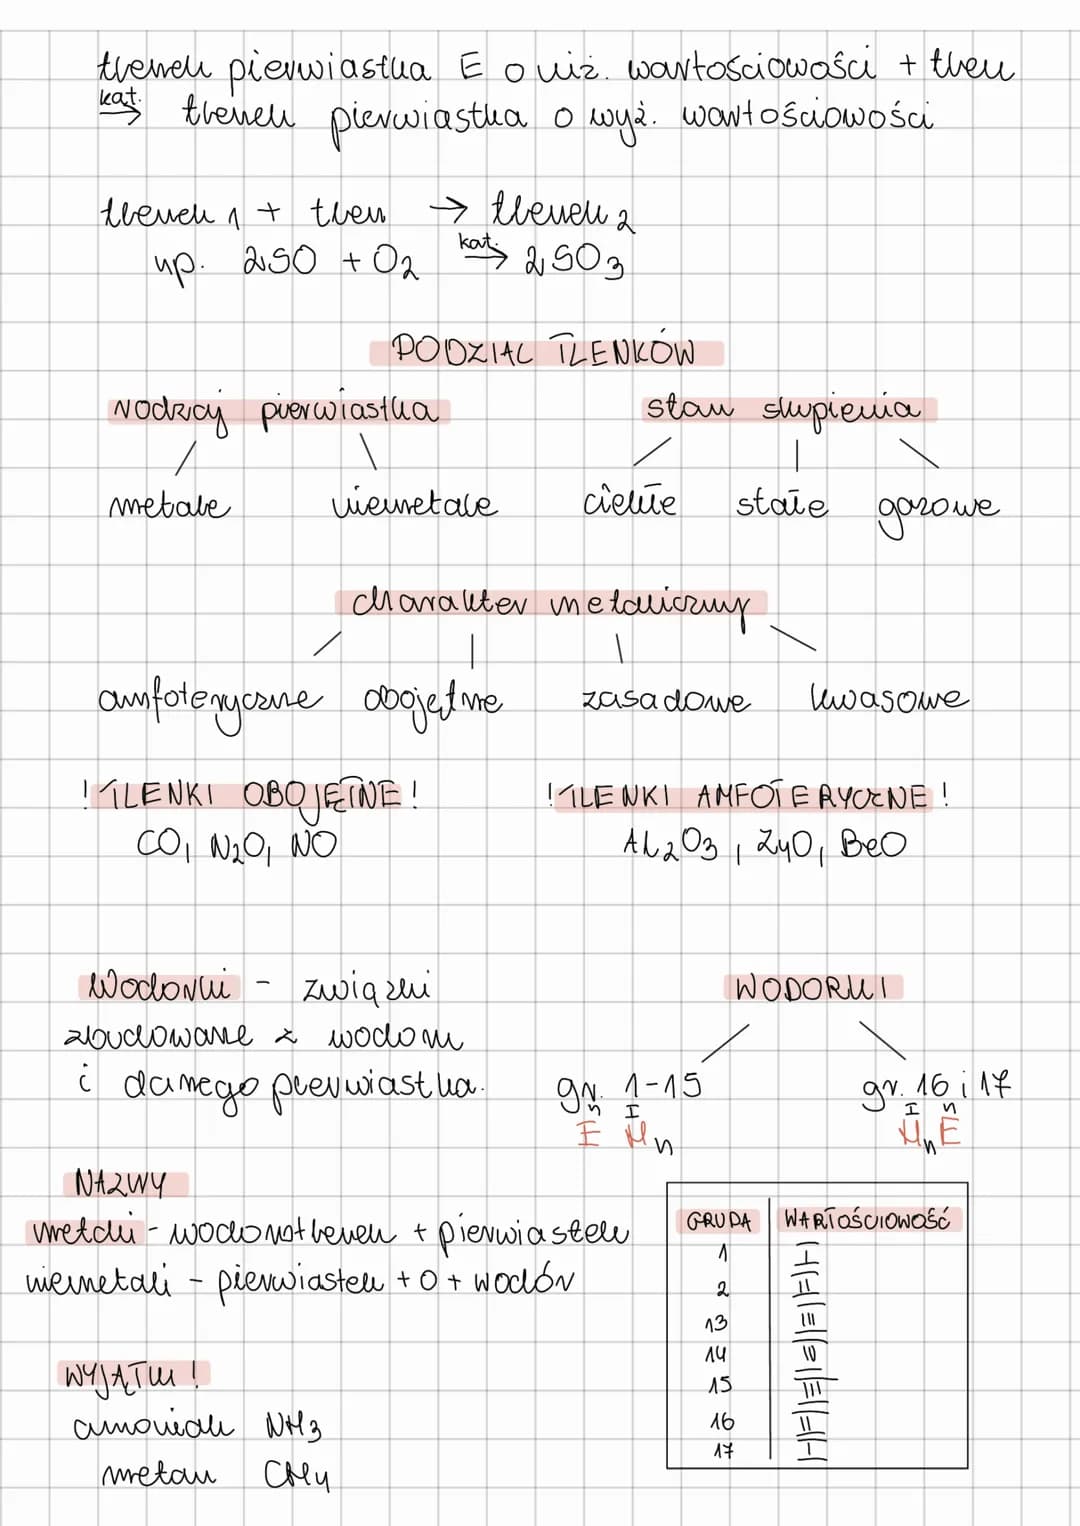 tlenek pierwiastka E o niż. wartościowości + tlen
kat. → tlenek pierwiastka o wyż. wartościowości
tlenek 1 + tlen → tlenek 2
np. 2SO + O2 kat. → 2SO3
PODZIAŁ TLENKÓW
rodzaj pierwiastka
stan skupienia
metale niemetale
ciekłe stałe gazowe
charakter metaliczny
amfoteryczne obojętne zasadowe kwasowe
! TLENKI OBOJĘTNE !
CO, N2O, NO
! TLENKI AMFOTERYCZNE !
Al2O3, ZnO, BeO
Wodorki - związki
zbudowane z wodoru
i danego pierwiastka.
WODORKI
gr. 1-15
n I
E Hn
gr. 16 i 17
I n
HnE
NAZWY
metali - wodorotlenek + pierwiastek
niemetali - pierwiastek + o + wodór
WYJĄTKI !
amoniak NH3
metan CH4
GRUPA WARTOŚCIOWOŚĆ
1 I
2 II
13 III
14 IV
15 III
16 II
17 I